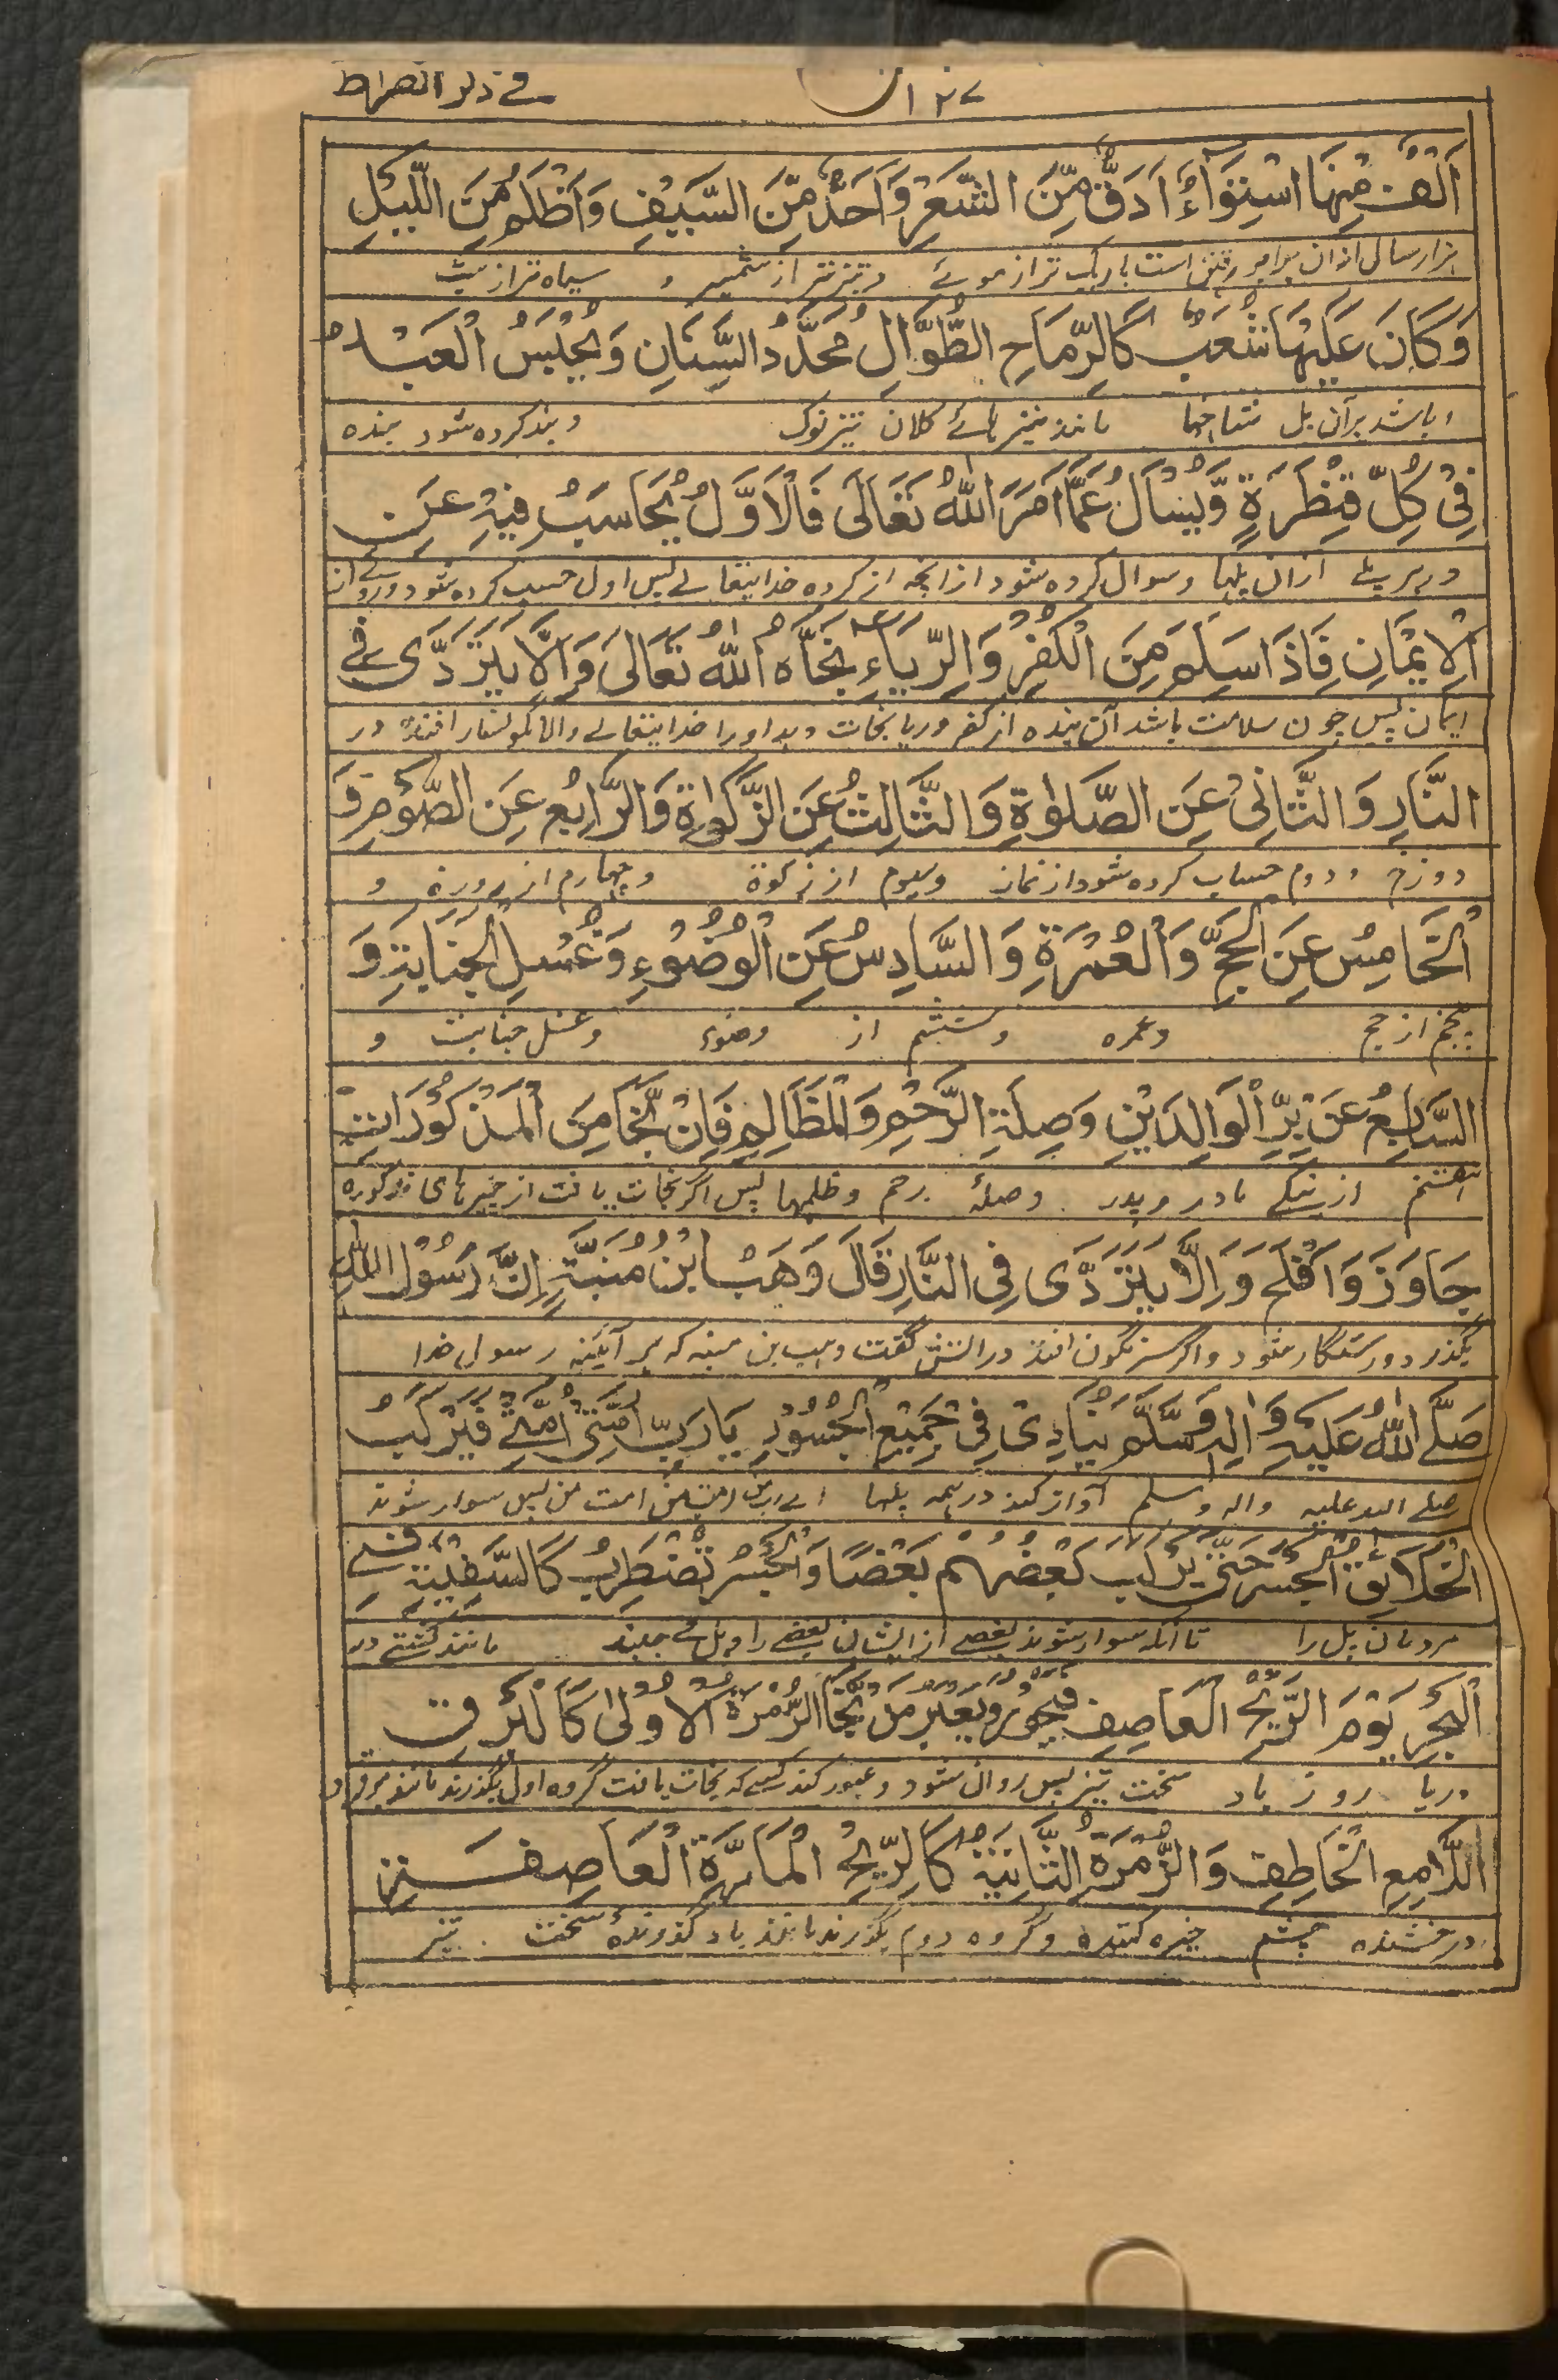 في ذكر الصراط ١٢٧
اَلْفٌ مِنْهَا اسْتِوَاءٌ اَدَقُّ مِّنَ الشَّعَرِ وَاَحَدُّ مِّنَ السَّيْفِ وَاَظْلَمُ مِنَ اللَّيْلِ
هزار سال ازان برابر رفتن است باریک تر از موئے و تیز تر از شمشیر و سیاه تر از شب
وَكَانَ عَلَيْهَا شُعَبٌ كَالرِّمَاحِ الطُّوَّالِ مُحَدَّدُ السِّنَانِ وَيُحْبَسُ الْعَبْدُ
و باشد بر آن پل شاخها مانند نیزه هائے کلان تیز نوک و بند کرده شود بنده
فِيْ كُلِّ قِنْطَرَةٍ وَّيُسْاَلُ عَمَّا اَمَرَ اللّٰهُ تَعَالَى فَالْاَوَّلُ يُحَاسَبُ فِيْهِ عَنِ
در هر پلے ازان پلها و سوال کرده شود از انچه امر کرده خدایتعالے پس اول حسب کرده شود در وے از
الْاِيْمَانِ فَاِذَا سَلِمَ مِنَ الْكُفْرِ وَالرِّيَاءِ نَجَّاهُ اللّٰهُ تَعَالَى وَاِلَّا يَتَرَدَّى فِي
ایمان پس چون سلامت باشد آن بنده از کفر و ریا نجات دهد او را خدایتعالے والا نگونسار افتد در
النَّارِ وَالثَّانِيْ عَنِ الصَّلٰوةِ وَالثَّالِثُ عَنِ الزَّكٰوةِ وَالرَّابِعُ عَنِ الصَّوْمِ وَ
دوزخ و دوم حساب کرده شود از نماز و سیوم از زکوة و چهارم از روزه و
الْخَامِسُ عَنِ الْحَجِّ وَالْعُمْرَةِ وَالسَّادِسُ عَنِ الْوُضُوْءِ وَغُسْلِ الْجَنَابَةِ وَ
پنجم از حج و عمره و ششم از وضوء و غسل جنابت و
السَّابِعُ عَنْ بِرِّ الْوَالِدَيْنِ وَصِلَةِ الرَّحِمِ وَالْمَظَالِمِ فَاِنْ نَجَا مِنَ الْمَذْكُوْرَاتِ
هفتم از نیکے مادر و پدر و صلۀ رحم و ظلمها پس اگر نجات یافت از چیزهای مذکوره
جَاوَزَ وَاَفْلَحَ وَاِلَّا يَتَرَدَّى فِي النَّارِ قَالَ وَهَبُ ابْنُ مُنَبَّهٍ اِنَّ رَسُوْلَ اللّٰهِ
بگذرد و رستگار شود و اگر سرنگون افتد در آتش گفت وهب بن منبه که هر آئینه رسول خدا
صَلَّى اللّٰهُ عَلَيْهِ وَاٰلِهٖ وَسَلَّمَ يُنَادِيْ فِيْ جَمِيْعِ الْجُسُوْرِ يَا رَبِّ اُمَّتِيْ اُمَّتِيْ فَيَرْكَبُ
صلے الله علیه واله وسلم آواز کند در همه پلها اے رب من امت من امت من پس سوار شوند
الْخَلَائِقُ الْجَسْرَ حَتّٰى يَرْكَبَ بَعْضُهُمْ بَعْضًا وَالْجَسْرُ تَضْطَرِبُ كَالسَّفِيْنَةِ فِي
مردمان پل را تا آنکه سوار شوند بعضے از ایشان بعضے را و پل مے جنبد مانند کشتے در
الْبَحْرِ يَوْمَ الرِّيْحِ الْعَاصِفِ فَيَجُوْزُ وَيَعْبُرُ مَنْ نَّجَا الزُّمْرَةُ الْاُوْلٰى كَالْبَرْقِ
دریا روز باد سخت تیز پس روان شود و عبور کند کسے که نجات یافت گروه اول بگذرند مانند برق
اللَّامِعِ الْخَاطِفِ وَالزُّمْرَةُ الثَّانِيَةُ كَالرِّيْحِ الْمَارَّةِ الْعَاصِفَةِ
درخشنده چشم خیره کننده و گروه دوم بگذرند مانند باد گذرندۀ سخت تیز